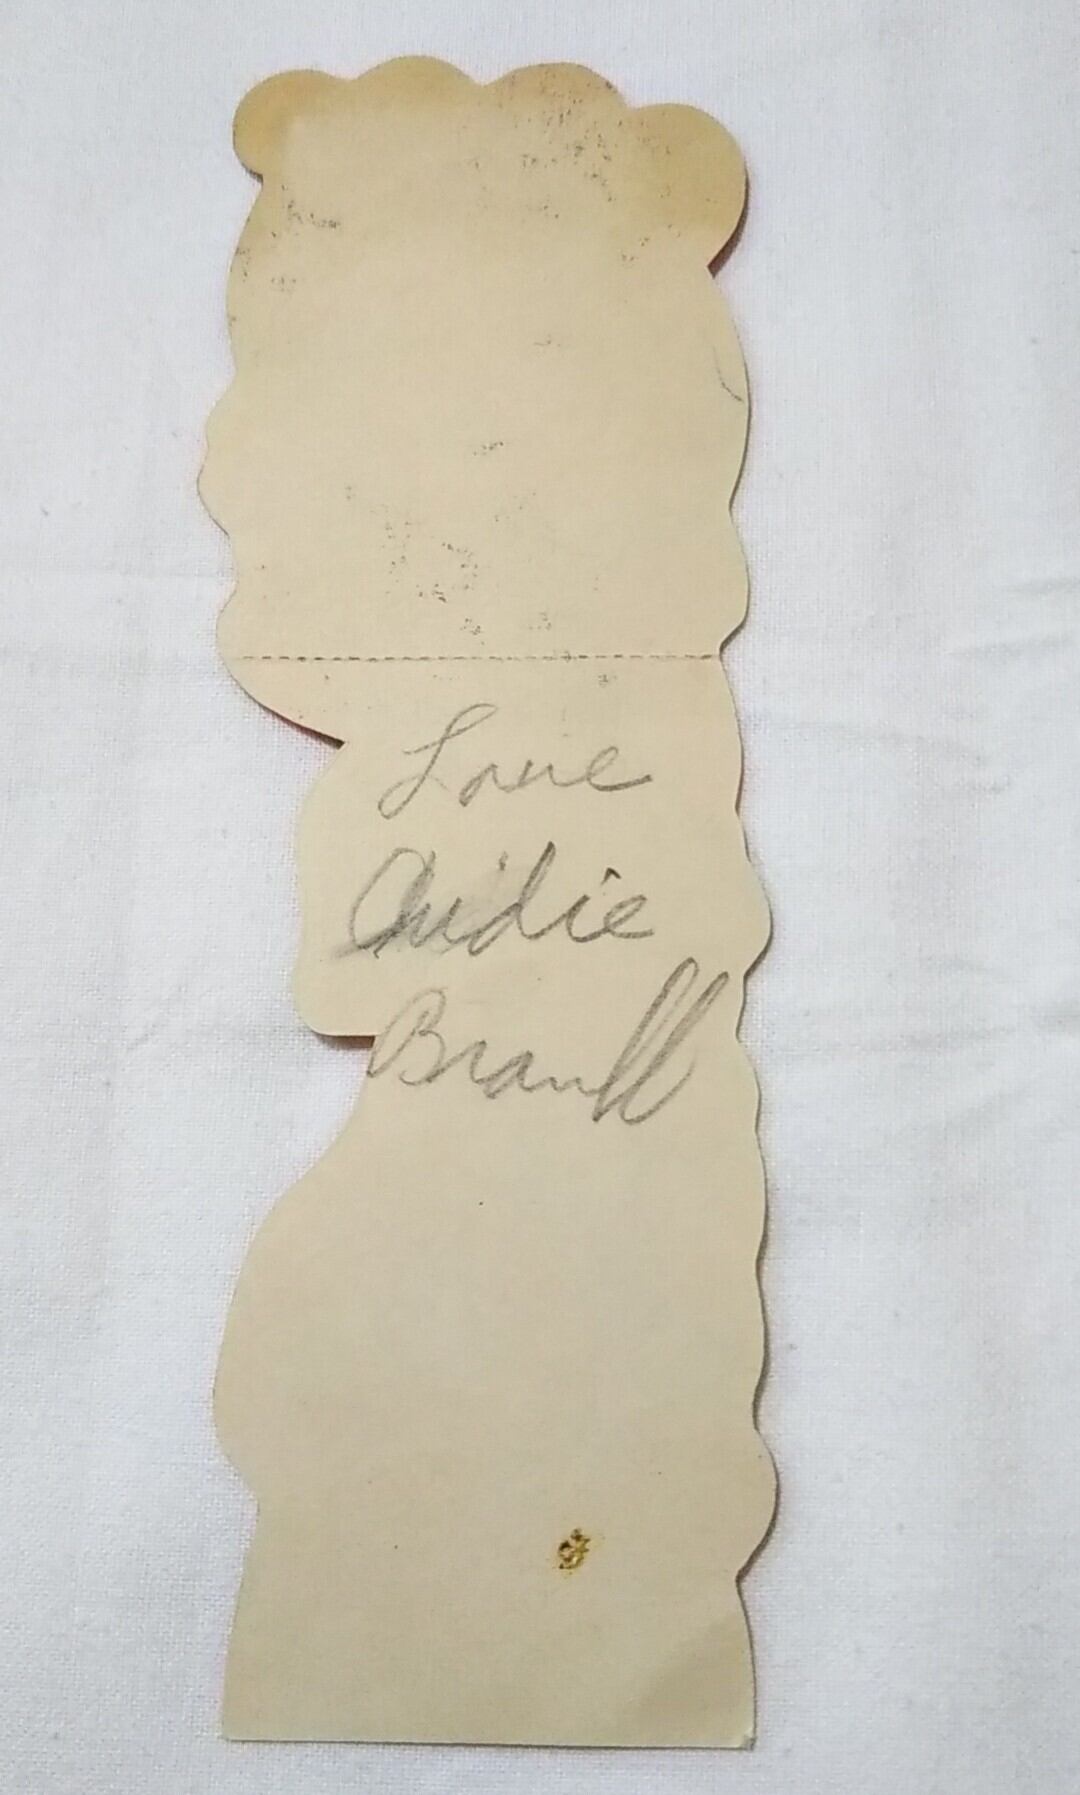 Love
Audie
Brandl